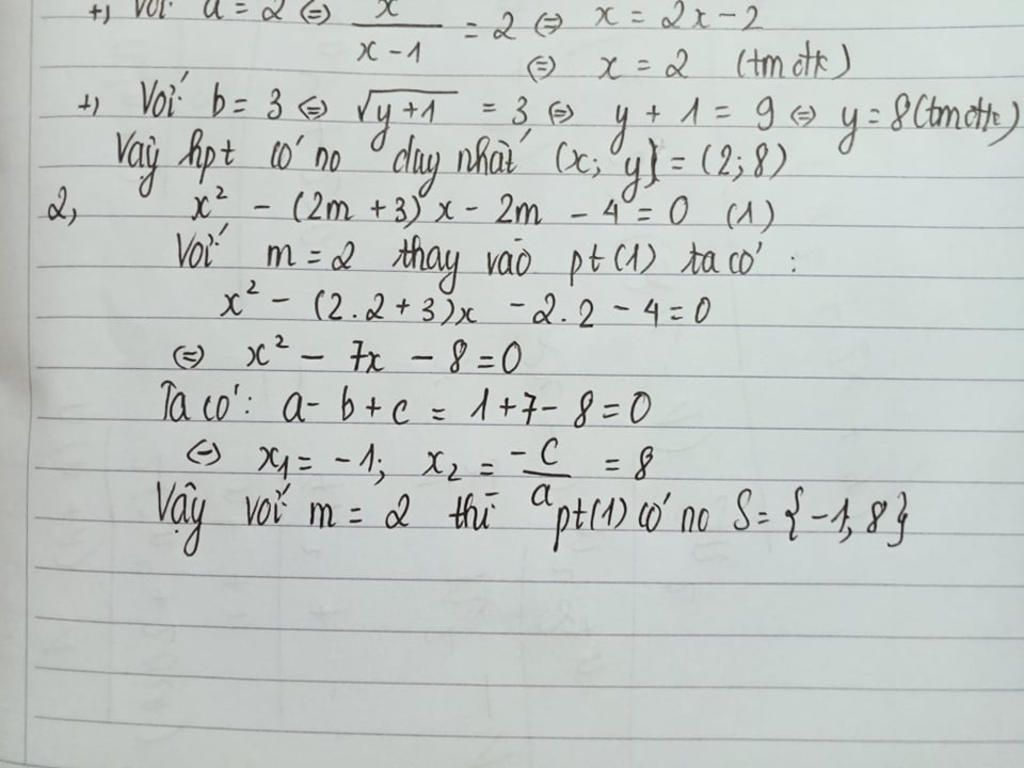 +) Với a = 2 ⇔ x/(x-1) = 2 ⇔ x = 2x - 2
⇔ x = 2 (tmđk)
+) Với b = 3 ⇔ √(y+1) = 3 ⇔ y + 1 = 9 ⇔ y = 8 (tmđk)
Vậy hpt có no duy nhất (x; y) = (2; 8)
2, x² - (2m + 3)x - 2m - 4 = 0 (1)
Với m = 2 thay vào pt (1) ta có :
x² - (2.2 + 3)x - 2.2 - 4 = 0
⇔ x² - 7x - 8 = 0
Ta có: a - b + c = 1 + 7 - 8 = 0
⇔ x₁ = -1; x₂ = -c/a = 8
Vậy với m = 2 thì pt (1) có no S = {-1; 8}